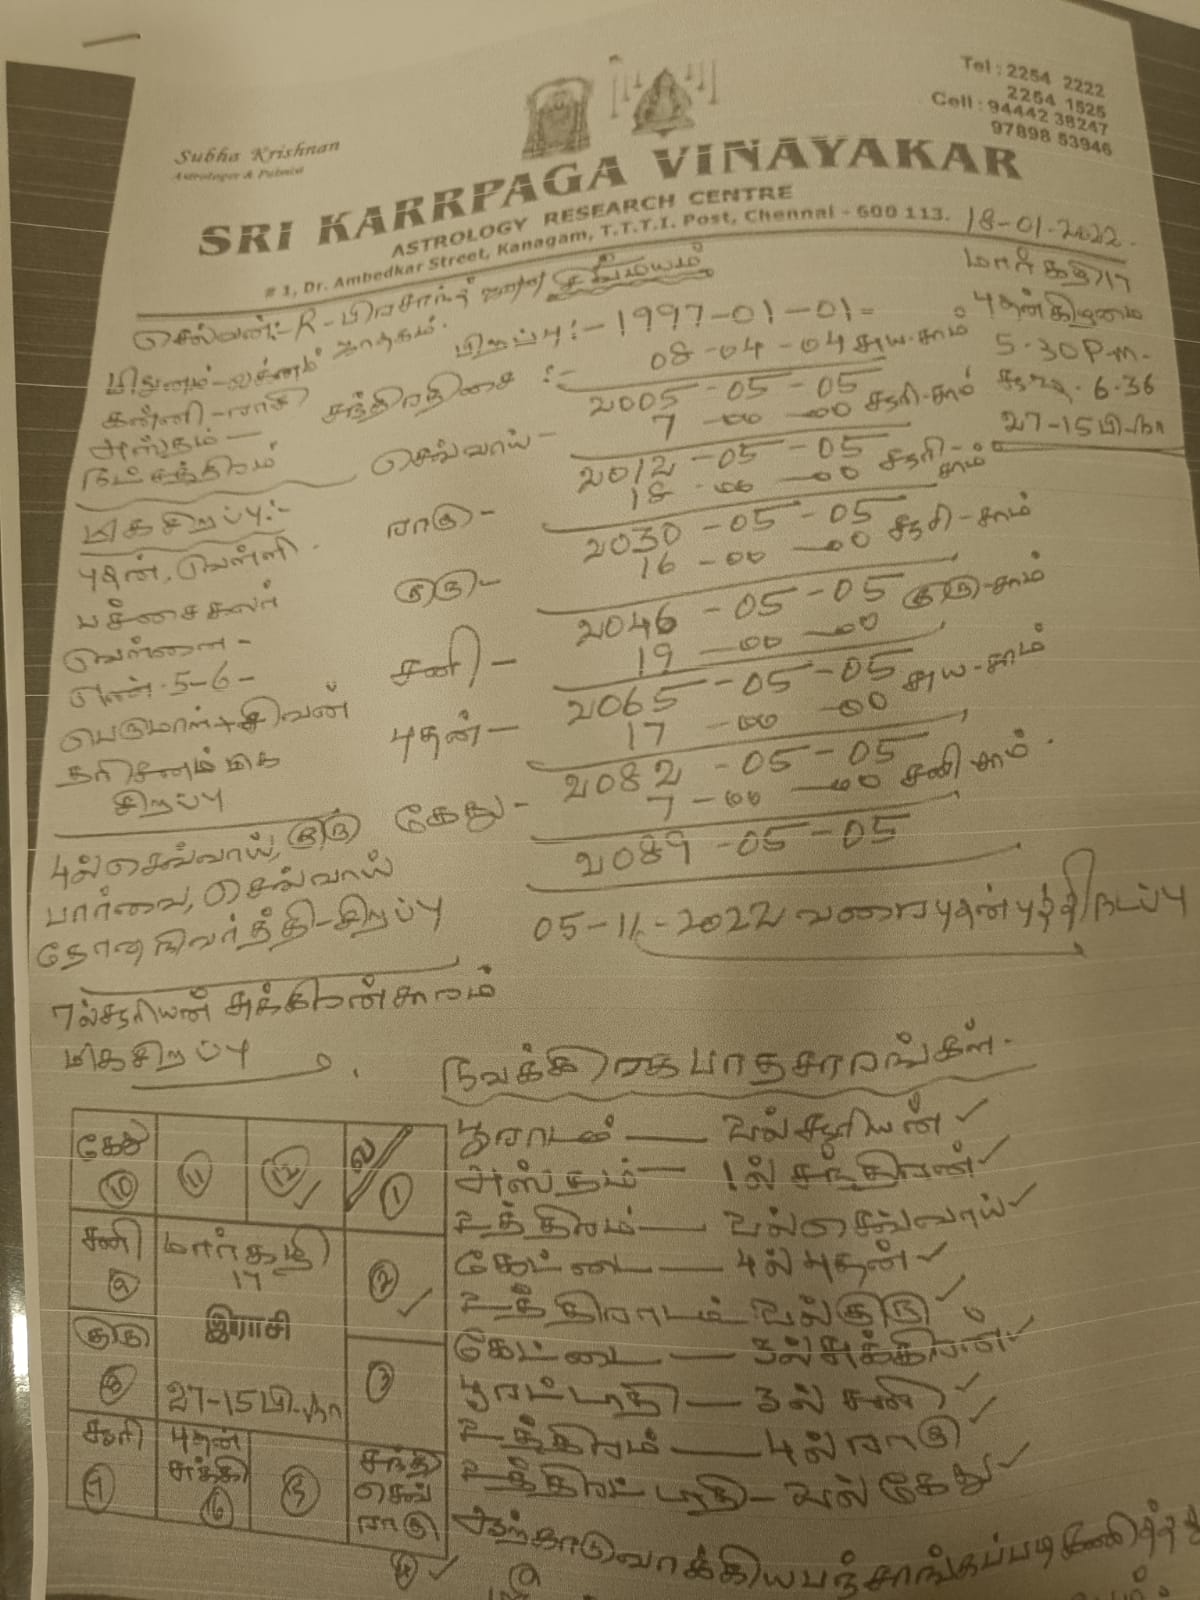 Tel : 2254 2222
2254 1525
Cell : 94442 38247
97898 53946
Subha Krishnan
Astrologer & Palmist
SRI KARRPAGA VINAYAKAR
ASTROLOGY RESEARCH CENTRE
# 1, Dr. Ambedkar Street, Kanagam, T.T.T.I. Post, Chennai - 600 113.
18-01-2022.
செல்வன்:- R-பிரசாந்த்
ஜாதகம்.
மார்கழி 17
புதன்கிழமை
5-30 P.m.
6-36
27-15 பி.நா
மிதுனம்-லக்னம்
கன்னி-ராசி
அஸ்தம்-
நட்சத்திரம்
பிறப்பு:- 1997-01-01=
சந்திரதிசை :- 08-04-04 சுய-சாம்
2005-05-05
செவ்வாய்- 7-00-00 சூரி-சாம்
2012-05-05
ராகு- 18-00-00 சூரி-சாம்
2030-05-05
குரு- 16-00-00 சூரி-சாம்
2046-05-05
சனி- 19-00-00 குரு-சாம்
2065-05-05
புதன்- 17-00-00 சுய-சாம்
2082-05-05
கேது- 7-00-00 சனி சாம்.
2089-05-05
மிகசிறப்பு:-
புதன், வெள்ளி.
பச்சைகலர்
வெள்ளை-
எண்.5-6-
பெருமாள்+சிவன்
தரிசனம் மிக
சிறப்பு
4ல் செவ்வாய், குரு
பார்வை, செவ்வாய்
தோஷநிவர்த்தி-சிறப்பு
05-11-2022 வரை புதன்புத்தி நடப்பு
7ல்சூரியன் சுக்கிரன்சாரம்
மிகசிறப்பு
நவக்கிரகபாதசாரங்கள்-
பூராடம் — 2ல்சூரியன்
அஸ்தம் — 1ல் சந்திரன்
உத்திரம் — 2ல்செவ்வாய்
கேட்டை — 4ல்புதன்
உத்திராடம் 2ல்குரு
கேட்டை — 3ல்சுக்கிரன்
பூரட்டாதி — 3ல் சனி
உத்திரம் — 4ல்ராகு
உத்திரட்டாதி — 2ல் கேது
கேது
10
11
12
ல/
1
சனி
9
மார்கழி
17
இராசி
27-15 பி.நா
2
குரு
8
3
சூரி
7
புதன்
சுக்கி
6
5
சந்தி
செவ்
ராகு
4
ஆற்காடுவாக்கியபஞ்சாங்கப்படி